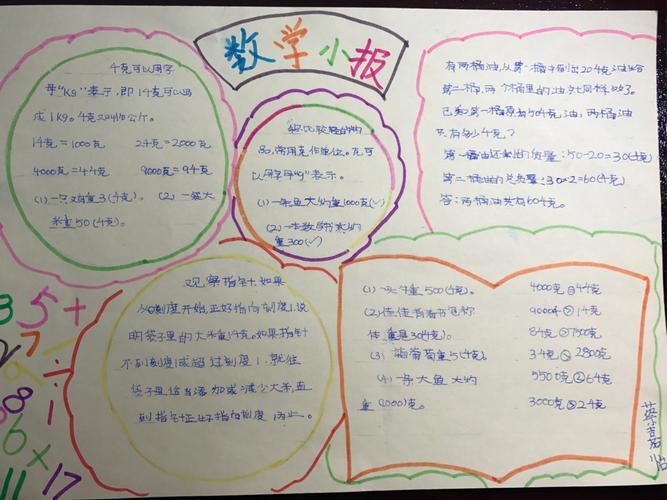 数学小报
千克可以用字
母"Kg"表示,即1千克可以写
成1Kg。千克又叫作公斤。
1千克=1000克 2千克=2000克
4000克=4千克 9000克=9千克
(1)一只鸡重3(千克)。 (2)一袋大
米重50(千克)。
称比较轻的物
品,常用克作单位。克可
以用字母"g"表示。
(1)一条鱼大约重1000克(✓)
(2)一本数学书大约
重300(✓)
有两桶油,从第一桶中倒出20千克油给
第二桶,两个桶里的油就同样多了。
已知第一桶原有50千克油,两桶油
共有多少千克?
第一桶油还剩的质量:50-20=30(千克)
第二桶油的总质量:30×2=60(千克)
答:两桶油共有60千克。
观察指针,如果
从0刻度开始,正好指向刻度1,说
明袋子里的大米重1千克。如果指针
不到刻度或超过刻度1,就往
袋子里适当添加或减少大米,直
到指针正好指向刻度1为止。
(1)一头牛重500(千克)。
(2)佳佳
体重是30(千克)。
(3)葡萄重5(千克)。
(4)一条大鱼大约
重(2000)克。
4000克=4千克
9000克>1千克
8千克>7500克
3千克>2800克
5500克<6千克
3000克>2千克
3 5 +
2 7 ÷
9
8 1
6 ×
11 17